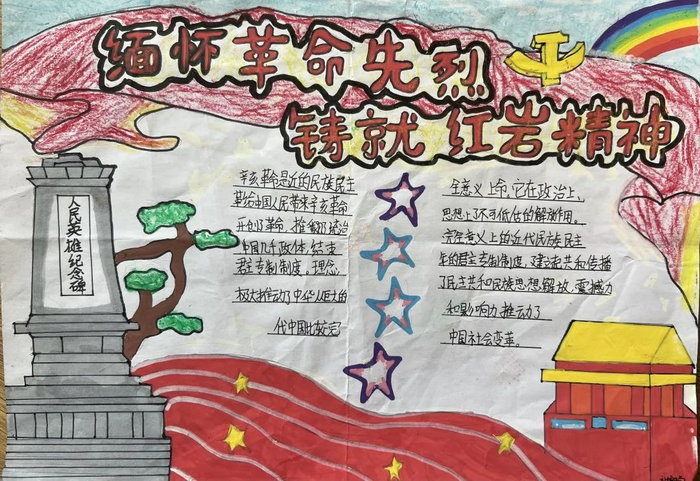 缅怀革命先烈
铸就红岩精神
人民英雄纪念碑
辛亥革命是近的民族民主
革给中国人民带来辛亥革命
开创了革命,推翻了统治
中国几千政体,结束
君主专制制度。理念,
极大推动了中华人巨大的
代中国比较完
全意义上命,它在政治上、
思想上不可低估的解放作用。
完全意义上的近代民族民主
年的君主专制制度,建立起共和传播
了民主共和民族思想解放,震撼力
和影响力,推动了
中国社会变革。